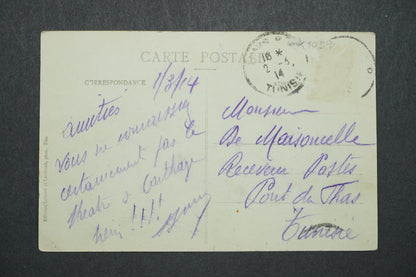 CARTE POSTALE
CORRESPONDANCE
1/3/14
amitiés
Vous ne connaissez
certainement pas le
théatre d Carthage
hein !!!!
Monsieur
De Maisoncelle
Receveur Postes
Pont du Fhas
Tunisie
18 *
2 - 3
14
TUNISIE